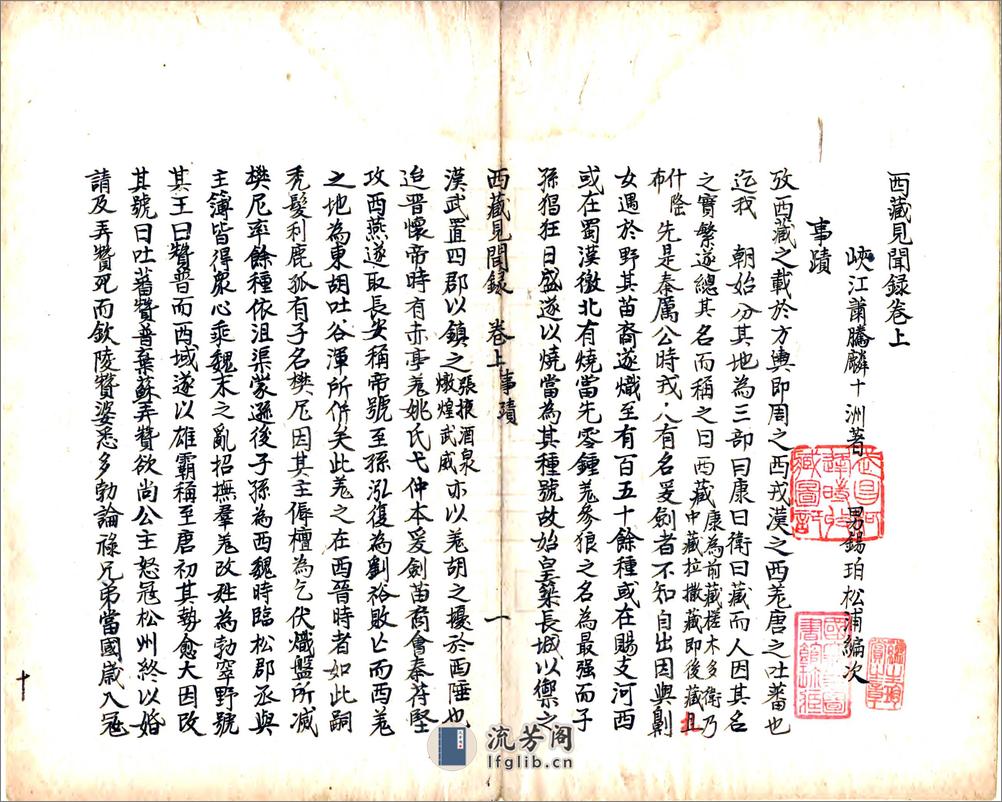 西藏見聞録卷上
峽江蕭騰麟十洲著 男錫珀松浦編次
事蹟
攷西藏之載於方輿即周之西戎漢之西羌唐之吐蕃也
迄我 朝始分其地為三部曰康曰衛曰藏而人因其名
之實繁遂總其名而稱之曰西藏康為前藏槎木多衛乃中藏拉撒藏即後藏且
什隆布先是秦厲公時我人有名爰劍者不知自出因與劓
女遇於野其苗裔遂熾至有百五十餘種或在賜支河西
或在蜀漢徼北有燒當先零鍾羌參狼之名為最强而子
孫猖狂日盛遂以燒當為其種號故始皇築長城以禦之
西藏見聞録 卷上 事蹟 一
漢武置四郡以鎮之張掖酒泉燉煌武威亦以羌胡之擾於西陲也
迨晋懷帝時有赤亭羌姚氏弋仲本爰劍苗裔會秦苻堅
攻西燕遂取長安稱帝號至孫泓復為劉裕敗亡而西羌
之地為東胡吐谷渾所併矣此羌之在西晉時者如此嗣
禿髮利鹿孤有子名樊尼因其主傉檀為乞伏熾盤所滅
樊尼率餘種依沮渠蒙遜後子孫為西魏時臨松郡丞與
主簿皆得衆心乘魏末之亂招撫羣羌改姓為勃窣野號
其王曰贊普而西域遂以雄霸稱至唐初其勢愈大因改
其號曰吐蕃贊普棄蘇弄贊欲尚公主怒寇松州終以婚
請及弄贊死而欽陵贊婆悉多勃論祿兄弟當國歲入寇
十
流芳阁
lfglib.cn